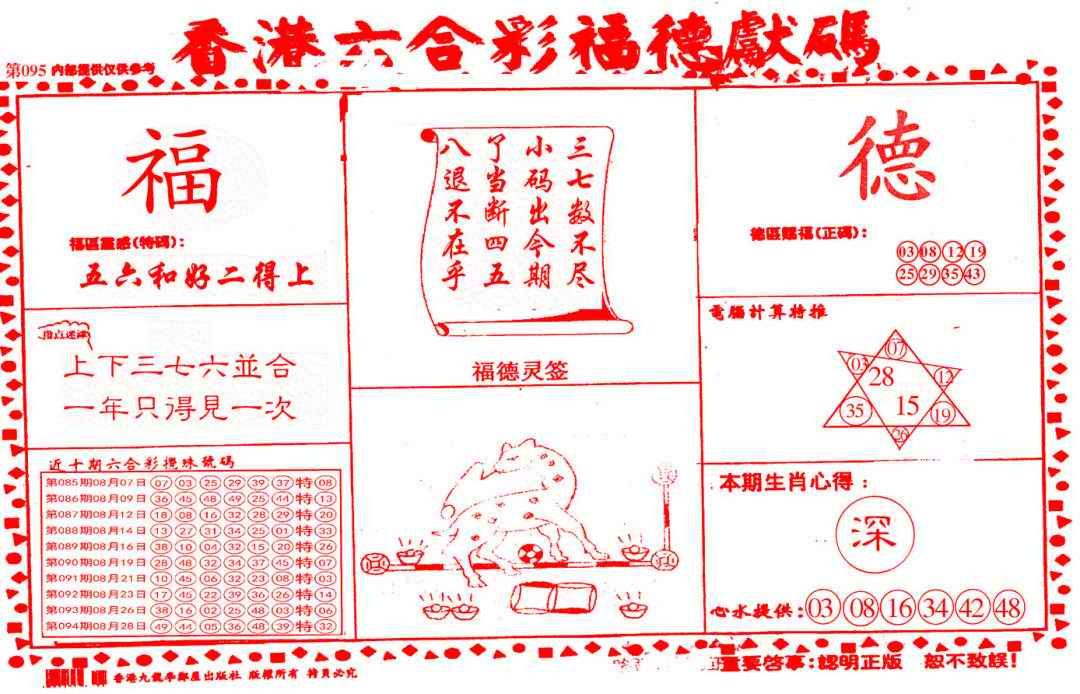 香港六合彩福德獻碼
第095 内部提供仅供参考
福
福區靈感(特碼):
五六和好二得上
指点迷津
上下三七六並合
一年只得見一次
近十期六合彩攪珠號碼
第085期08月07日 07 03 25 29 39 37 特 08
第086期08月09日 36 45 48 49 25 44 特 13
第087期08月12日 18 08 16 32 28 29 特 20
第088期08月14日 13 27 31 34 25 01 特 33
第089期08月16日 38 10 04 32 15 20 特 26
第090期08月19日 28 48 32 34 37 45 特 07
第091期08月21日 10 45 06 32 23 08 特 03
第092期08月23日 17 45 22 39 36 26 特 14
第093期08月26日 38 16 02 25 48 03 特 06
第094期08月28日 49 44 05 36 48 39 特 32
三七数不尽
小码出今期
了当断四五
八退不在乎
福德灵签
德
德區賜福(正碼):
03 08 12 19
25 29 35 43
電腦計算特推
07
03 28 12
35 15 19
26
本期生肖心得:
深
心水提供: 03 08 16 34 42 48
重要啓事:認明正版 恕不致誤!
出版社 版權所有